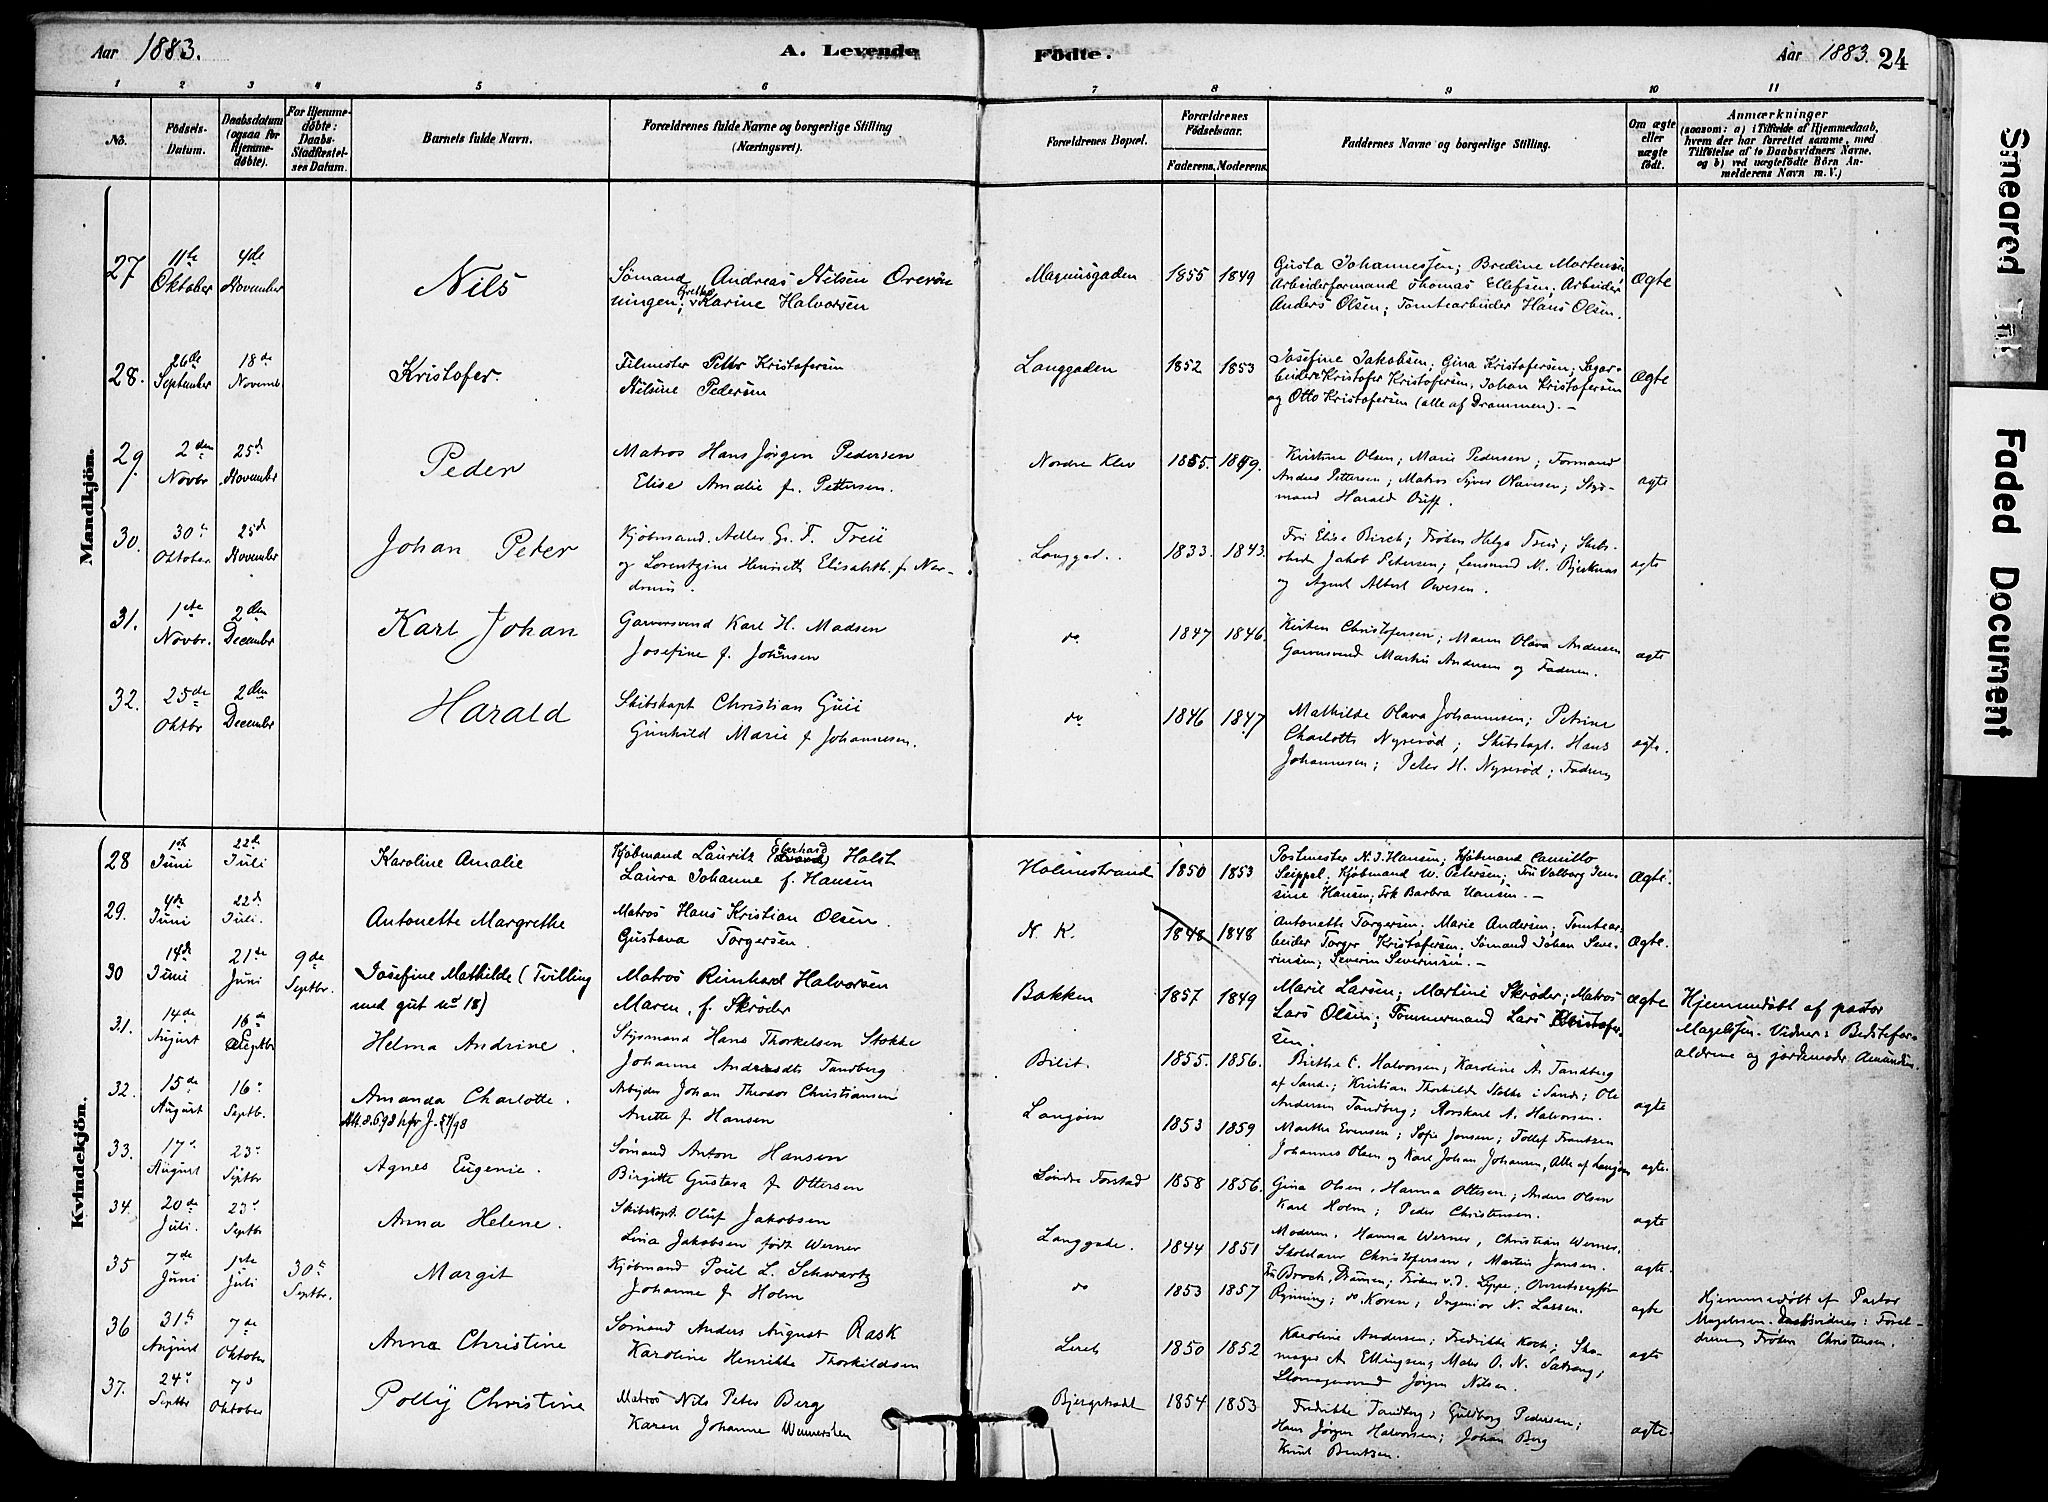 Aar 1883. A. Levende Födte. Aar 1883. 24
1 2 3 4 5 6 7 8 9 10 11
No.
Födsels-
Datum.
Daabsdatum
(ogsaa for
Hjemme-
døbte).
For Hjemme-
døbte:
Daabs-
Stadfæstel-
ses Datum.
Barnets fulde Navn.
Forældrenes fulde Navne og borgerlige Stilling
(Næringsvei).
Forældrenes Bopæl.
Forældrenes
Fødselsaar.
Faderens. Moderens.
Faddernes Navne og borgerlige Stilling.
Om ægte
eller
uægte
født.
Anmærkninger
(saasom: a) i Tilfælde af Hjemmedaab,
hvem der har forrettet samme, med
Tilføielse af to Daabsvidners Navne.
og b) ved uægtefødte Börn An-
melderens Navn m. V.)
Mandkjön.
27 11te Oktober 4de November Nils
Sømand Andreas Nilsen Orerön
ningen; Grethe Karine Halvorsen
Magnusgaden 1855 1849
Gusta Johannessen; Bredine Mortensen
Arbeiderformand Thomas Ellefsen; Arbeider
Anders Olsen; Tomtearbeider Hans Olsen.
Ægte
28. 26de September 18de Novemb. Kristofer.
Filmester Peter Kristofersen
Nilsine Pedersen
Langgaden 1852 1853
Josefine Jakobsen; Gina Kristofersen; Sagar-
beider Kristofer Kristofersen, Johan Kristofersen
og Otto Kristofersen (alle af Drammen). –
Ægte
29. 2den Novbr 25d November Peder
Matros Hans Jørgen Pedersen
Elise Amalie f. Pettersen.
Nordre Klev 1855. 1849.
Kristine Olsen; Marie Pedersen; Formand
Anders Pettersen; Matros Syver Olavesen; Styr-
mand Harald Duff.
ægte
30. 30te Oktober 25d November Johan Peter
Kjøbmand. Adler Gr. F. Treu
og Lorentzine Henriette Elisabeth. f. Nar-
drum.
Langgad. 1833. 1843.
Fru Elise Birch; Frøken Helga Treu; Skibs-
Jakob Petersen; Lensmand M. Bjerknes
og Agent Albert Owesen.
ægte
31. 1ste Novbr. 2den December Karl Johan
Garversvend Karl H. Madsen
Josefine f. Johansen
do 1847 1846.
Kirsten Christofersen; Maren Olava Andersen
Garversvend Martin Andersen og Faderen.
ægte
32. 25de Oktbr 2den December Harald
Skibskapt Christian Guii
Gunhild Marie f Johannesen.
do 1846 1847
Mathilde Olava Johannesen; Petrine
Charlotte Nyrerød; Skibskapt. Hans
Johannesen; Peter H. Nyrerød; Faderen
ægte.
Kvindekjön.
28 1ste Juni 22de Juli Karoline Amalie
Kjøbmand Lauritz Eberhard Holst
Laura Johanne f. Hansen
Holmestrand 1850 1853
Postmester N. J. Hansen; Kjøbmand Camillo
Seippel; Kjøbmand W. Petersen; Fru Valborg Jen-
sine Hansen; Frk Barbra Hansen. –
Ægte.
29. 4de Juni 22de Juli. Antonette Margrethe
Matros Hans Kristian Olsen
Gustava Torgersen.
N. K. 1848 1848
Antonette Torgersen; Marie Andersen; Tomtear-
beider Torger Kristofersen. Sømand Johan Seve-
rinsen; Severin Severinsen. –
Ægte.
30 14de Juni 21de Juni 9de Septbr. Josefine Mathilde (Tvilling
med gut no 18)
Matros Reinhard Halvorsen
Maren, f. Skrøder
Bakken 1857 1849
Marie Larsen; Martine Skrøder; Matros
Lars Olsen; Tømmermand Lars Kristofer-
sen.
Ægte
Hjemmedøbt af pastor
Magelssen. Vidner: Bedstefor-
ældrene og jordemoder Amundsen.
31. 14de August 16de Septbr Helma Andrine.
Styrmand Hans Thorkelsen Stokke
Johanne Andreasdt Tandberg
Bilit. 1855. 1856.
Birthe C. Halvorsen; Karoline A. Tandberg
af Sande; Kristian Thorkilds Stokke i Sande; Ole
Andersen Tandberg; Rorskarl A. Halvorsen.
ægte
32. 15de August 16. Septbr. Amanda Charlotte.
Att. 8.6.98 hpr J. 54/98
Arbejder Johan Theodor Christiansen
Anette f. Hansen
Langøen 1853 1859.
Marthe Evensen; Sofie Jonsen; Tollef Frantzen
Johannes Olsen og Karl Johan Johansen, Alle af Langøen
ægte.
33. 17. August 23. Sptbr Agnes Eugenie.
Sømand Anton Hansen
Birgitte Gustava f. Ottersen
Søndre Torstad 1858 1856.
Gina Olsen. Hanna Ottesen; Anders Olsen
Karl Holm; Peder Christensen.
ægte
34. 20de Juli. 23. Septbr Anna Helene.
Skibskapt. Oluf Jakobsen
Lina Jakobsen født Werner
Langgade. 1844 1851
Moderen. Hanna Werner, Christian Werner,
Christofersen, Martin Jansen.
ægte.
35 7de Juni 1ste Juli 30te Septbr. Margit
Kjøbmand Poul L. Schwartz
Johanne f Holm
do 1853 1857
Fru Broch, Drammen; Frøken v. d. Lyppe; Overretssagfør
Rynning; do Koren; Ingeniør N. Lassen.
ægte
Hjemmedøbt af Pastor
Magelssen. Daabsvidner: Foræl-
drene, Frøken Christensen.
36 31te August 7de Oktober Anna Christine
Sømand Anders August Rask
Karoline Henrikke Thorkildsen
Leret 1850 1852
Karoline Andersen; Fredrikke Koch; Sko-
mager A. Ellingsen; Maler O. N. Satrang;
Jørgen Nilsen.
ægte
37. 24. Septbr 7. Oktober Polly Christine
Matros Nils Peter Berg
Karen Johanne Wennersten
Bjergstredet 1854 1853
Fredrikke Tandberg; Guldborg Pedersen;
Hans Jørgen Halvorsen; Johan Berg
Knut Bentzen.
ægte.
Smeared Ink
Faded Document